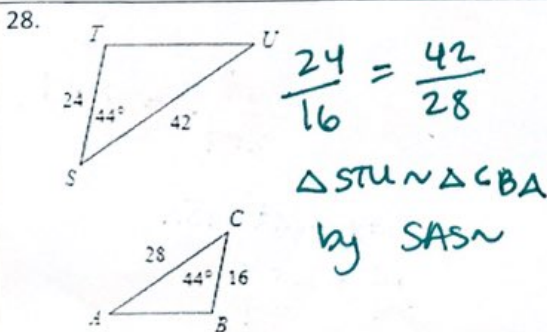 28.
T U
24 44° 42
S
24/16 = 42/28
△STU ~ △CBA
by SAS~
C
28 44° 16
A B